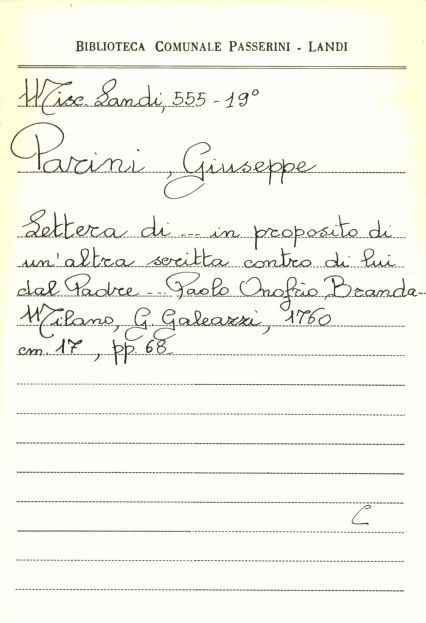 BIBLIOTECA COMUNALE PASSERINI - LANDI
Misc. Landi, 555 - 19°
Parini, Giuseppe
Lettera di ... in proposito di
un'altra scritta contro di lui
dal Padre ... Paolo Onofrio Branda-
Milano, G. Galeazzi, 1760
cm. 17, pp. 68
C